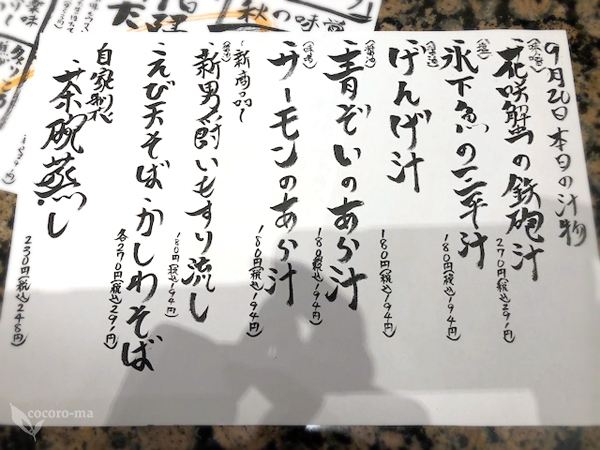 9月20日 本日の汁物
(味噌)
・花咲蟹の鉄砲汁
270円(税込291円)
(塩)
氷下魚の三平汁
180円(税込194円)
(醤油)
・げんげ汁
180円(税込194円)
(醤油)
・青ぞいのあら汁
180円(税込194円)
(味噌)
・サーモンのあら汁
180円(税込194円)
〜新商品〜
・新男爵いもすり流し
180円(税込194円)
・えび天そば・かしわそば
各270円(税込291円)
自家製
・茶碗蒸し
230円(税込248円)
秋の味覚
cocoro-ma